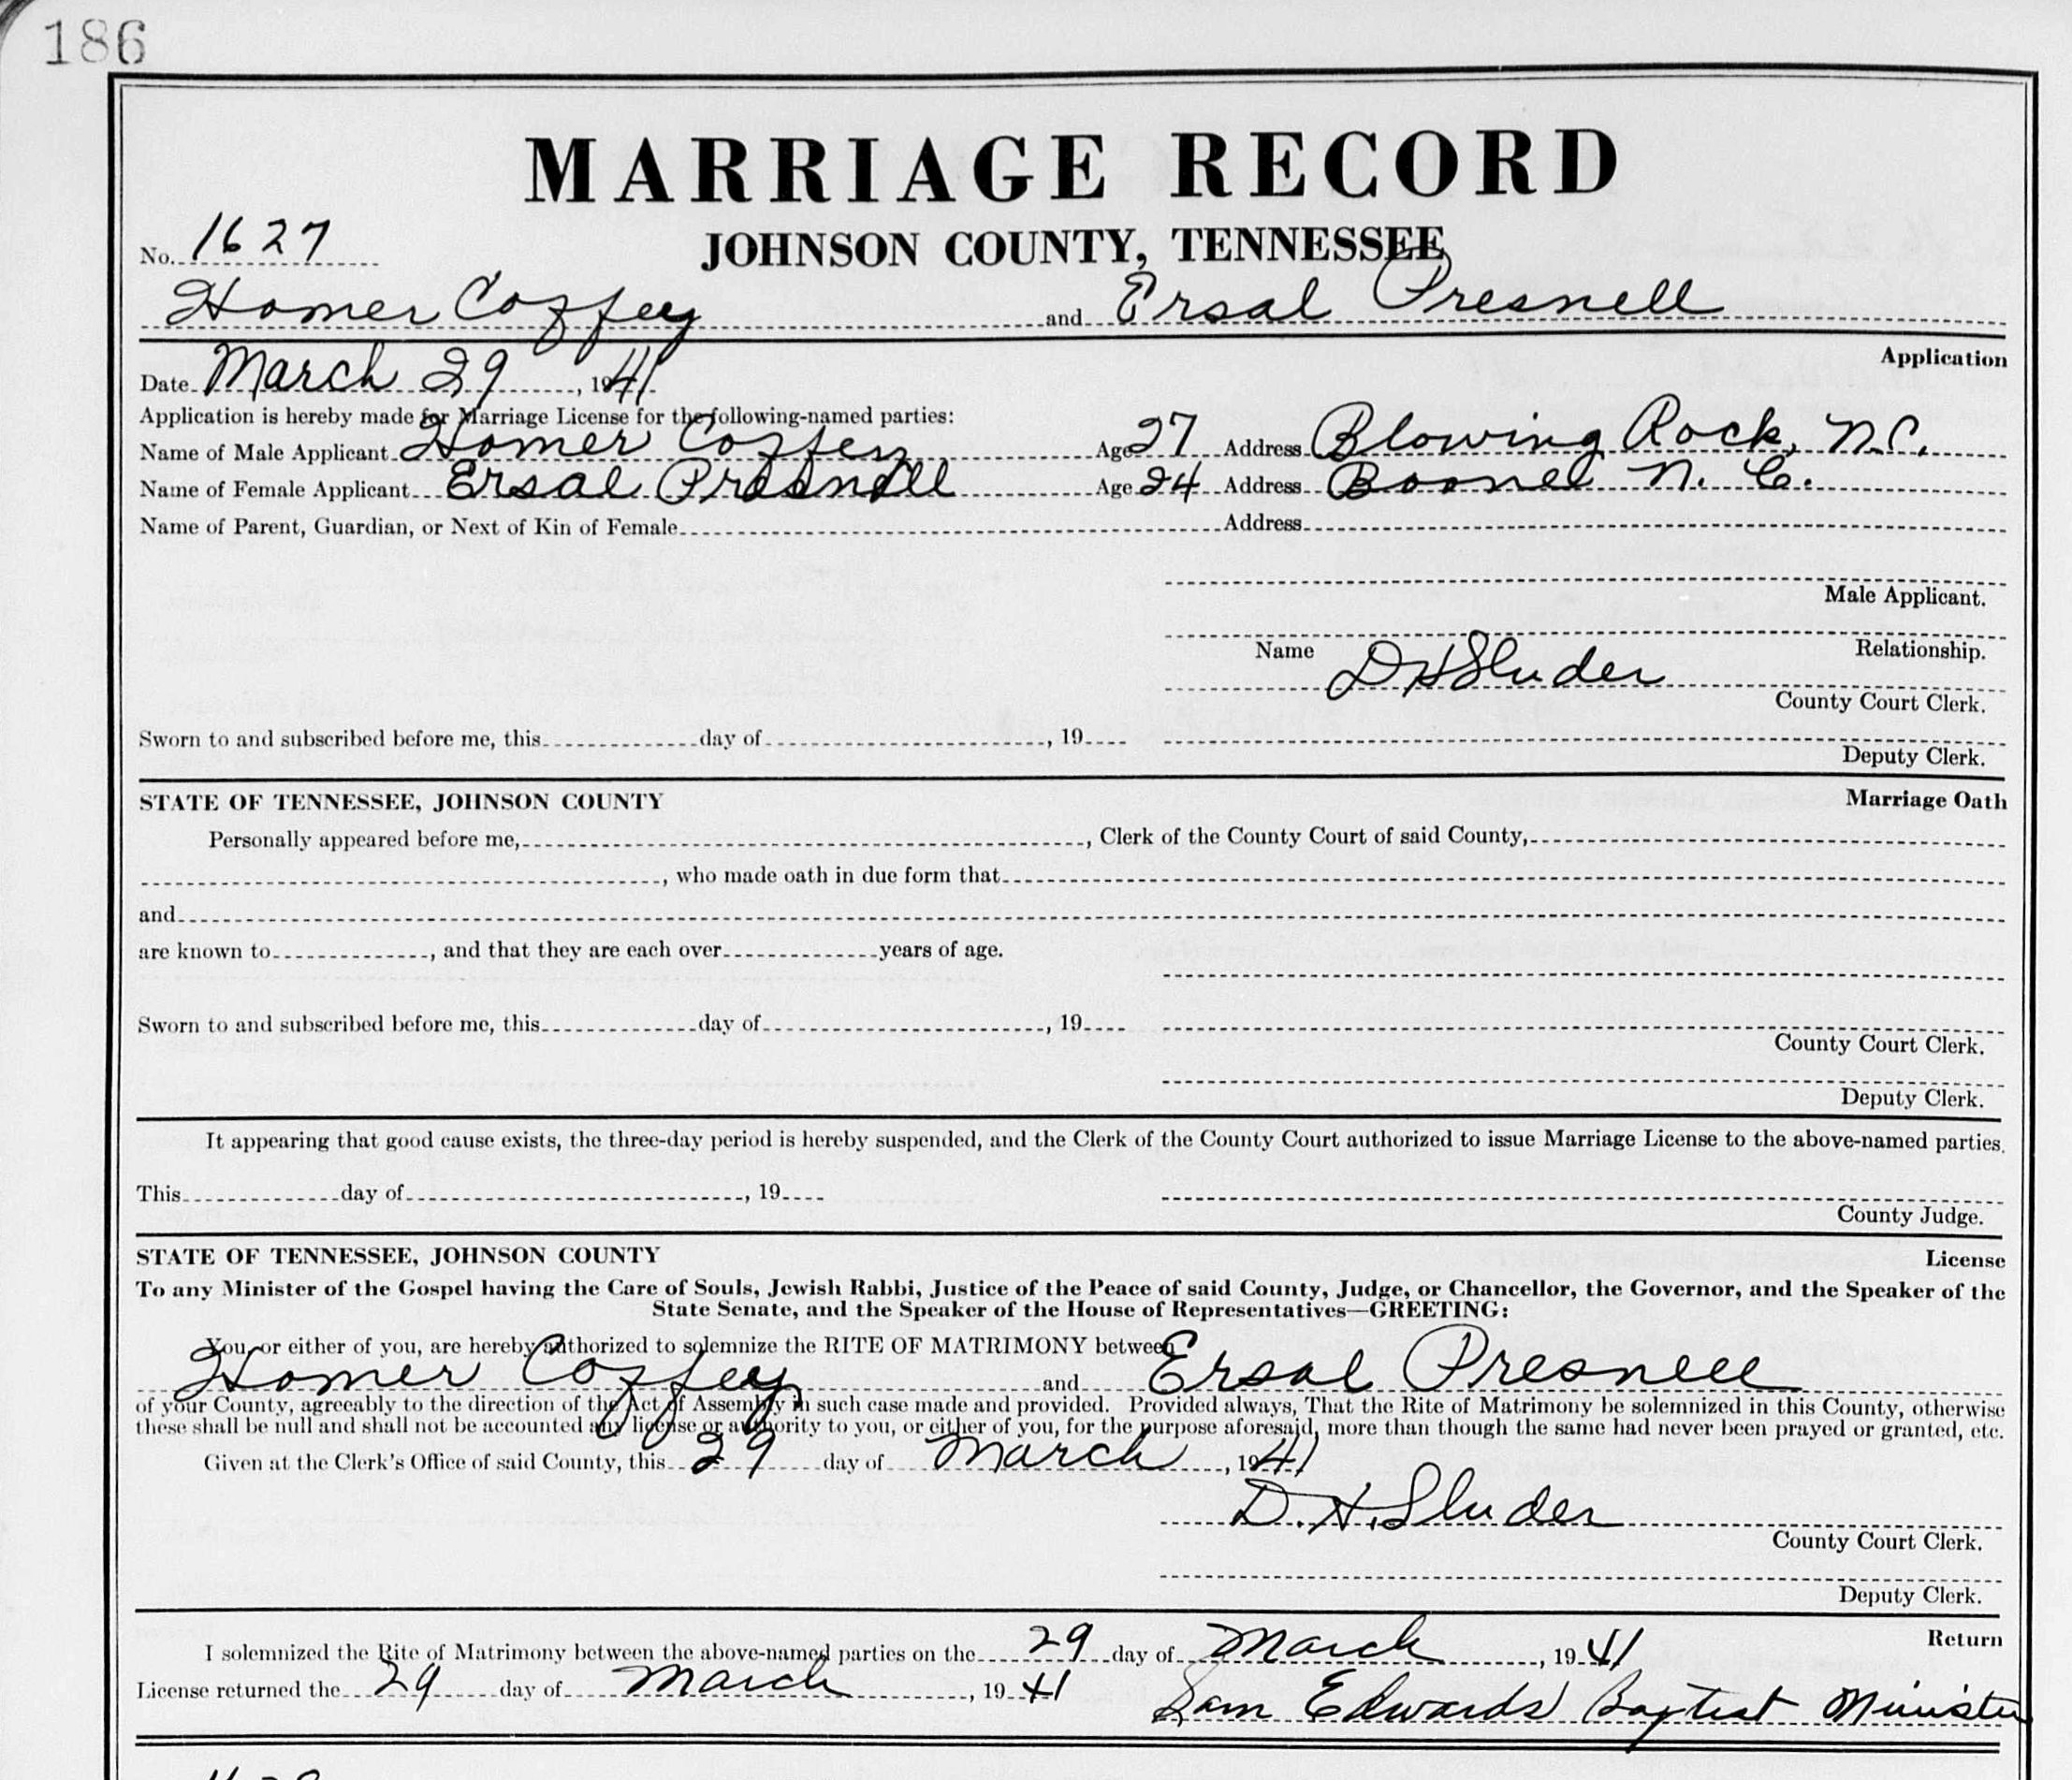 186
MARRIAGE RECORD
No. 1627 JOHNSON COUNTY, TENNESSEE
Homer Coffey and Ersal Presnell
Application
Date March 29, 1941
Application is hereby made for Marriage License for the following-named parties:
Name of Male Applicant Homer Coffey Age 27 Address Blowing Rock, N.C.
Name of Female Applicant Ersal Presnell Age 24 Address Boone N. C.
Name of Parent, Guardian, or Next of Kin of Female Address
Male Applicant.
Name Relationship.
D H Sluder
County Court Clerk.
Sworn to and subscribed before me, this day of , 19
Deputy Clerk.
STATE OF TENNESSEE, JOHNSON COUNTY Marriage Oath
Personally appeared before me, , Clerk of the County Court of said County,
, who made oath in due form that
and
are known to , and that they are each over years of age.
Sworn to and subscribed before me, this day of , 19
County Court Clerk.
Deputy Clerk.
It appearing that good cause exists, the three-day period is hereby suspended, and the Clerk of the County Court authorized to issue Marriage License to the above-named parties.
This day of , 19
County Judge.
STATE OF TENNESSEE, JOHNSON COUNTY License
To any Minister of the Gospel having the Care of Souls, Jewish Rabbi, Justice of the Peace of said County, Judge, or Chancellor, the Governor, and the Speaker of the
State Senate, and the Speaker of the House of Representatives—GREETING:
You, or either of you, are hereby authorized to solemnize the RITE OF MATRIMONY between
Homer Coffey and Ersal Presnell
of your County, agreeably to the direction of the Act of Assembly in such case made and provided. Provided always, That the Rite of Matrimony be solemnized in this County, otherwise
these shall be null and shall not be accounted any license or authority to you, or either of you, for the purpose aforesaid, more than though the same had never been prayed or granted, etc.
Given at the Clerk's Office of said County, this 29 day of March, 1941
D. H. Sluder
County Court Clerk.
Deputy Clerk.
Return
I solemnized the Rite of Matrimony between the above-named parties on the 29 day of March, 1941
License returned the 29 day of March, 1941 Sam Edwards Baptist Minister